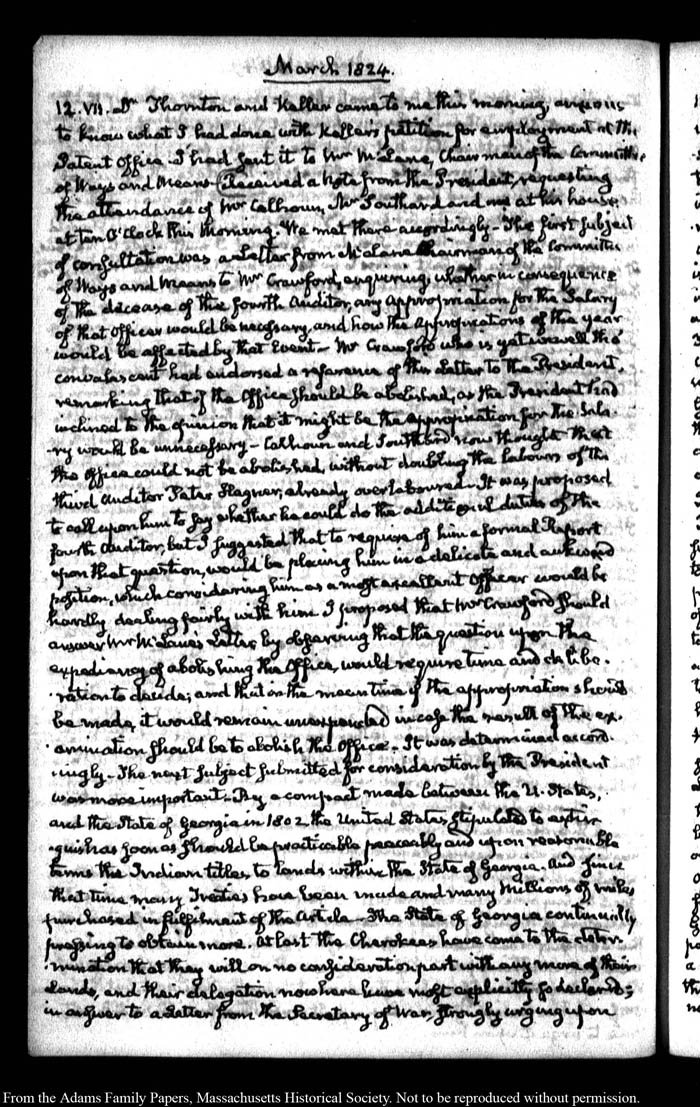 March 1824.
12. VII. Dr Thornton and Keller came to me this morning, anxious
to know what I had done with Keller's petition for employment at the
Patent Office. I had sent it to Mr McLane, Chairman of the Committee
of Ways and Means. Received a Note from the President, requesting
the attendance of Mr Calhoun, Mr Southard and me at his house,
at ten O'Clock this morning. We met there accordingly— The first subject
of consultation was a Letter from McLane Chairman of the Committee
of Ways and Means to Mr Crawford, enquiring, whether in consequence
of the decease of the fourth Auditor, any appropriation for the Salary
of that Officer would be necessary, and how the appropriations of the year
would be affected by that Event— Mr Crawford who is yet unwell tho'
convalescent had endorsed a reference of this Letter to the President,
remarking that if the Office should be abolished, as the President had
inclined to the opinion that it might be the appropriation for the Sala-
ry would be unnecessary— Calhoun and Southard now thought that
the Office could not be abolished, without doubling the labours of the
third Auditor Peter Hagner, already overlaboured. It was proposed
to call upon him to say whether he could do the additional duties of the
fourth Auditor, but I suggested that to require of him a formal Report
upon that question, would be placing him in a delicate and awkward
position, which considering him as a most excellent Officer would be
hardly dealing fairly with him. I proposed that Mr Crawford should
answer Mr McLane's Letter, by observing that the question upon the
expediency of abolishing the Office, would require time and delibe-
ration to decide; and that in the meantime if the appropriation should
be made, it would remain unexpended in case the result of the ex-
amination should be to abolish the Office. It was determined accord-
ingly— The next subject submitted for consideration by the President
was more important. By a compact made between the U. States,
and the State of Georgia in 1802 the United States stipulated to extin-
guish as soon as should be practicable peaceably and upon reasonable
terms the Indian titles to lands within the State of Georgia. And since
that time many Treaties have been made and many Millions of
purchased in fulfilment of the Article— The State of Georgia continually
pressing to obtain more. At last the Cherokees have come to the deter-
mination that they will on no consideration part with any more of their
lands, and their delegation now here have most explicitly so declared;
in answer to a Letter from the Secretary of War, strongly urging upon
From the Adams Family Papers, Massachusetts Historical Society. Not to be reproduced without permission.